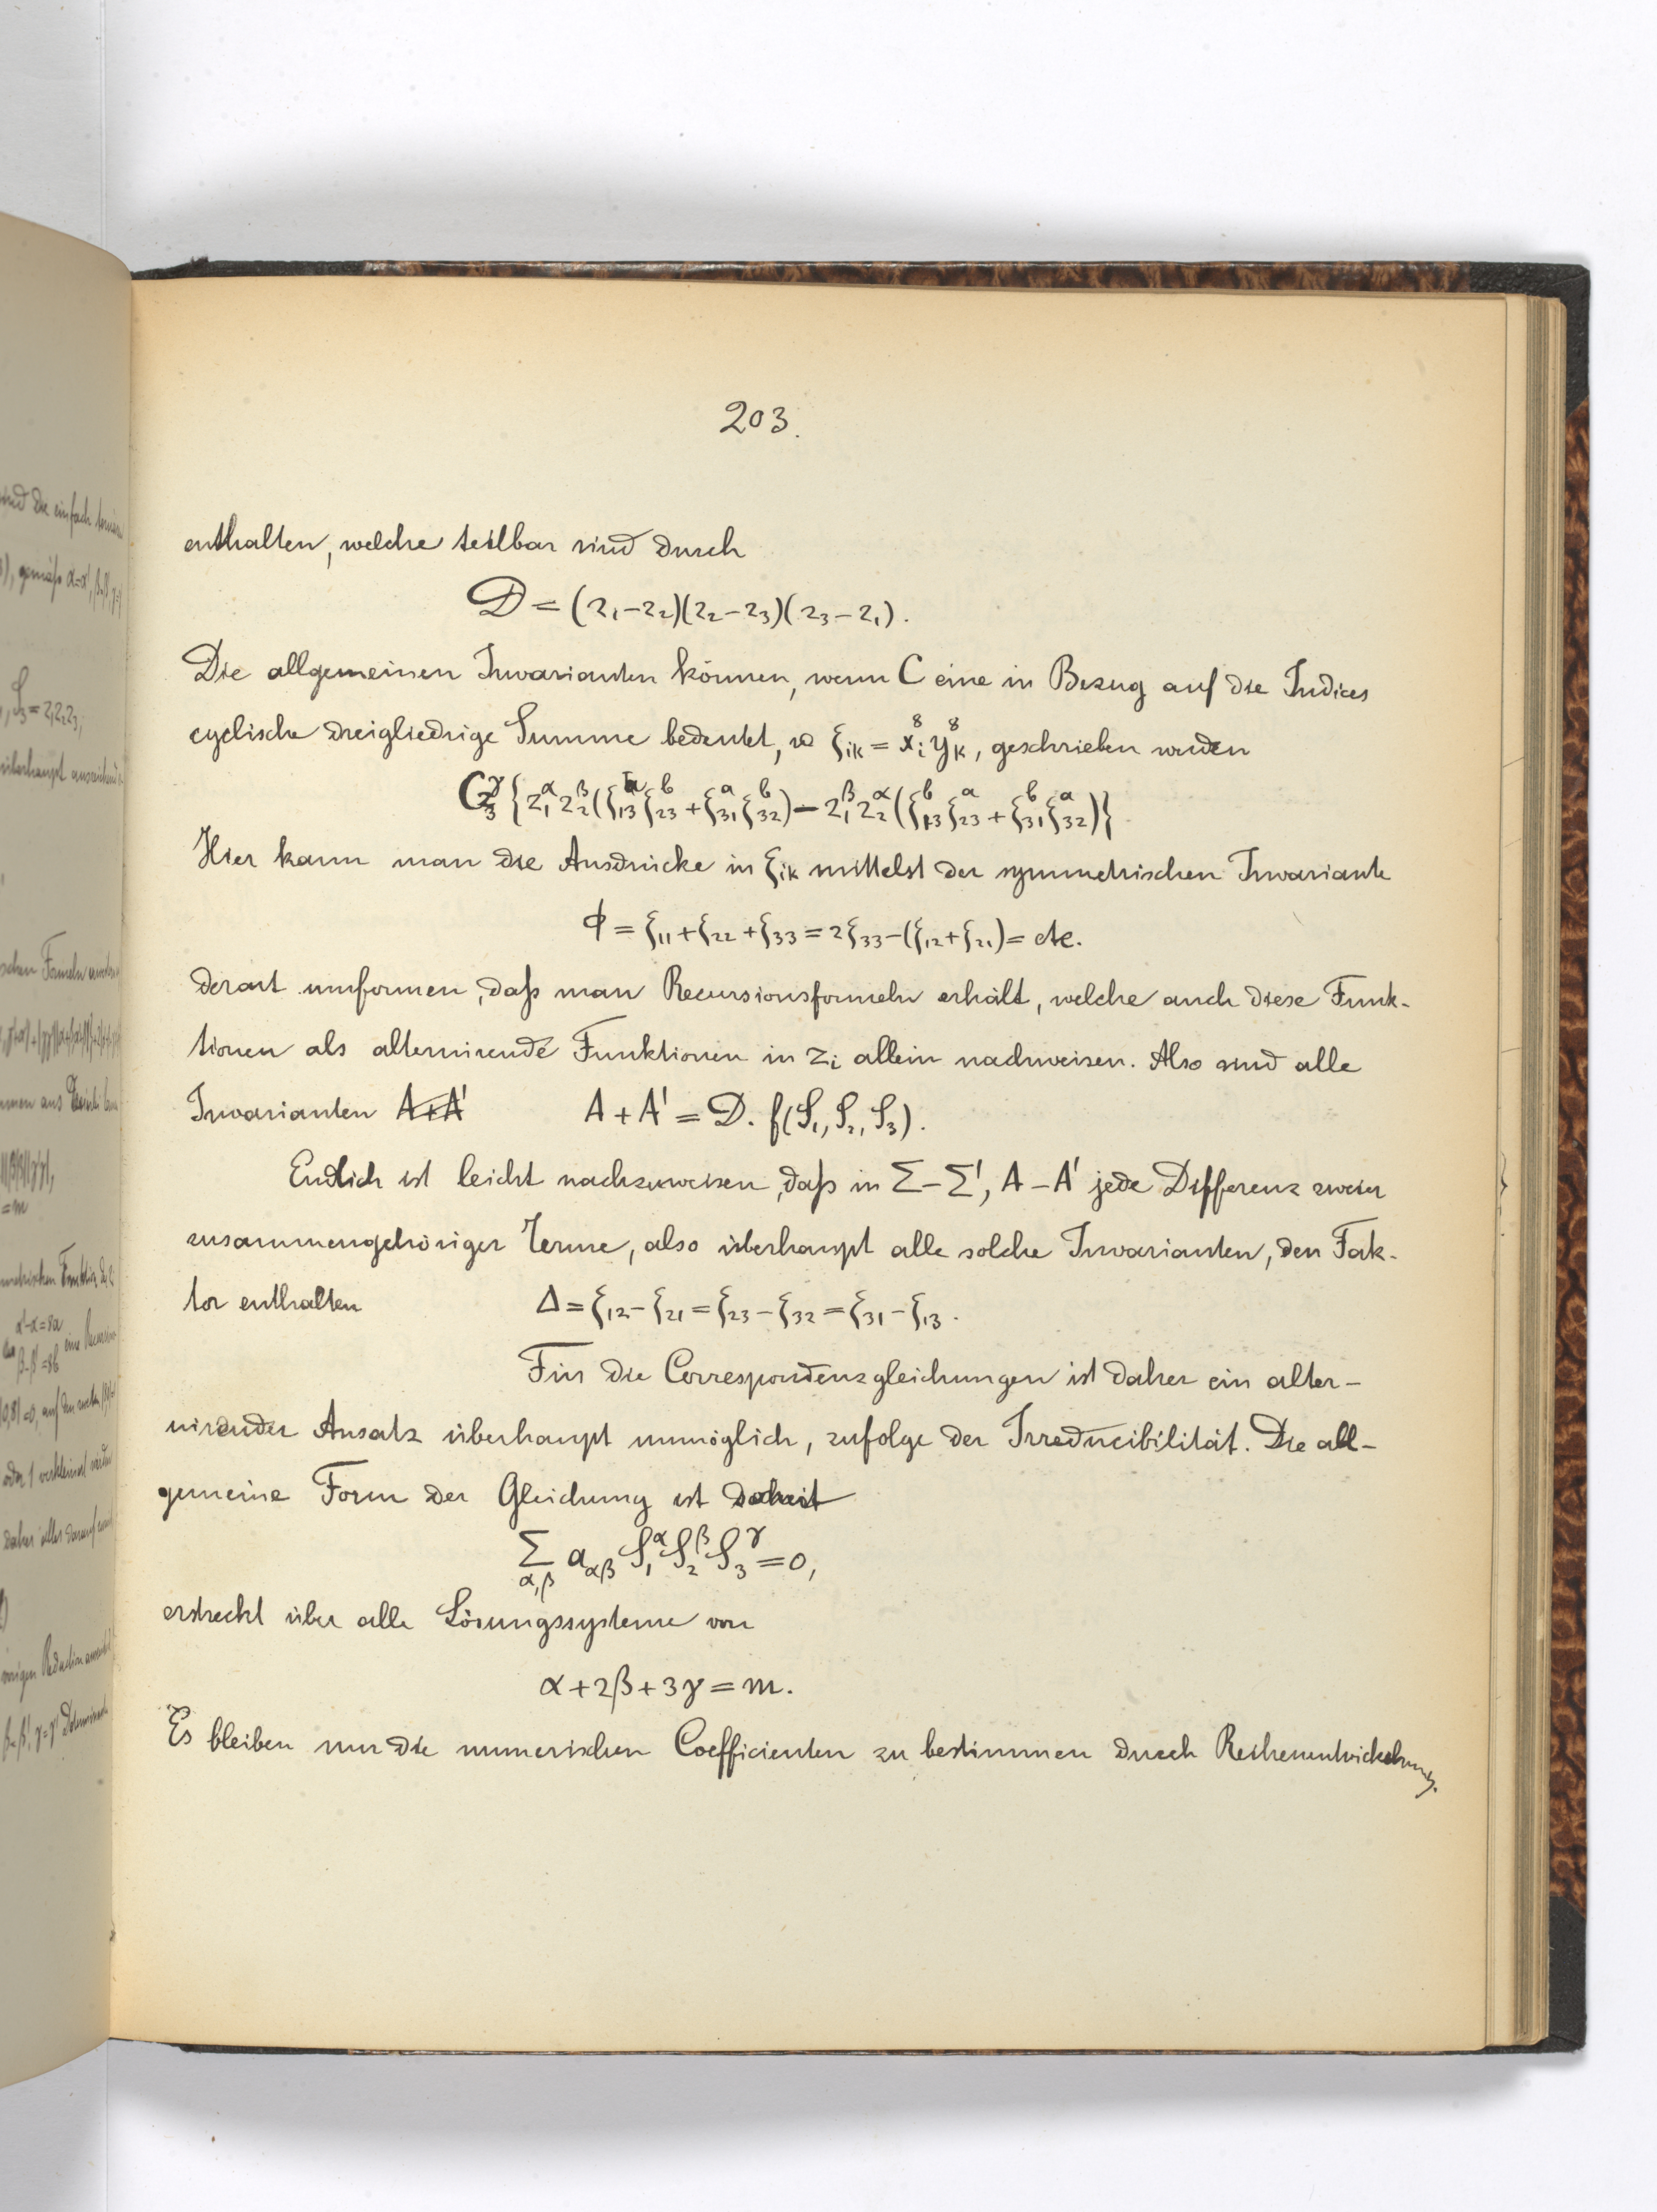 203.
enthalten, welche teilbar sind durch
D = (z₁-z₂)(z₂-z₃)(z₃-z₁).
Die allgemeinen Invarianten können, wenn C eine in Bezug auf die Indices
cyclische dreigliedrige Summe bedeutet, u ξᵢₖ = xᵢ⁸ yₖ⁸, geschrieben werden
C z₃^γ {z₁^α z₂^β (ξ₁₃^a ξ₂₃^b + ξ₃₁^a ξ₃₂^b) - z₁^β z₂^α (ξ₁₃^b ξ₂₃^a + ξ₃₁^b ξ₃₂^a)}
Hier kann man die Ausdrücke in ξᵢₖ mittelst der symmetrischen Invariante
ϕ = ξ₁₁+ξ₂₂+ξ₃₃ = 2ξ₃₃-(ξ₁₂+ξ₂₁) = etc.
derart umformen, daß man Recursionsformeln erhält, welche auch diese Funk-
tionen als alternirende Funktionen in zᵢ allein nachweisen. Also sind alle
Invarianten A+A' A + A' = D. f(S₁, S₂, S₃).
Endlich ist leicht nachzuweisen, daß in Σ-Σ', A-A' jede Differenz zweier
zusammengehöriger Terme, also überhaupt alle solche Invarianten, den Fak-
tor enthalten Δ = ξ₁₂-ξ₂₁ = ξ₂₃-ξ₃₂ = ξ₃₁-ξ₁₃.
Für die Correspondenzgleichungen ist daher ein alter-
nirender Ansatz überhaupt unmöglich, zufolge der Irreducibilität. Die all-
gemeine Form der Gleichung ist
Σ_{α,β} a_{αβ} S₁^α S₂^β S₃^γ = 0,
erstreckt über alle Lösungssysteme von
α+2β+3γ = m.
Es bleiben nur die numerischen Coefficienten zu bestimmen durch Reihenentwickelung.